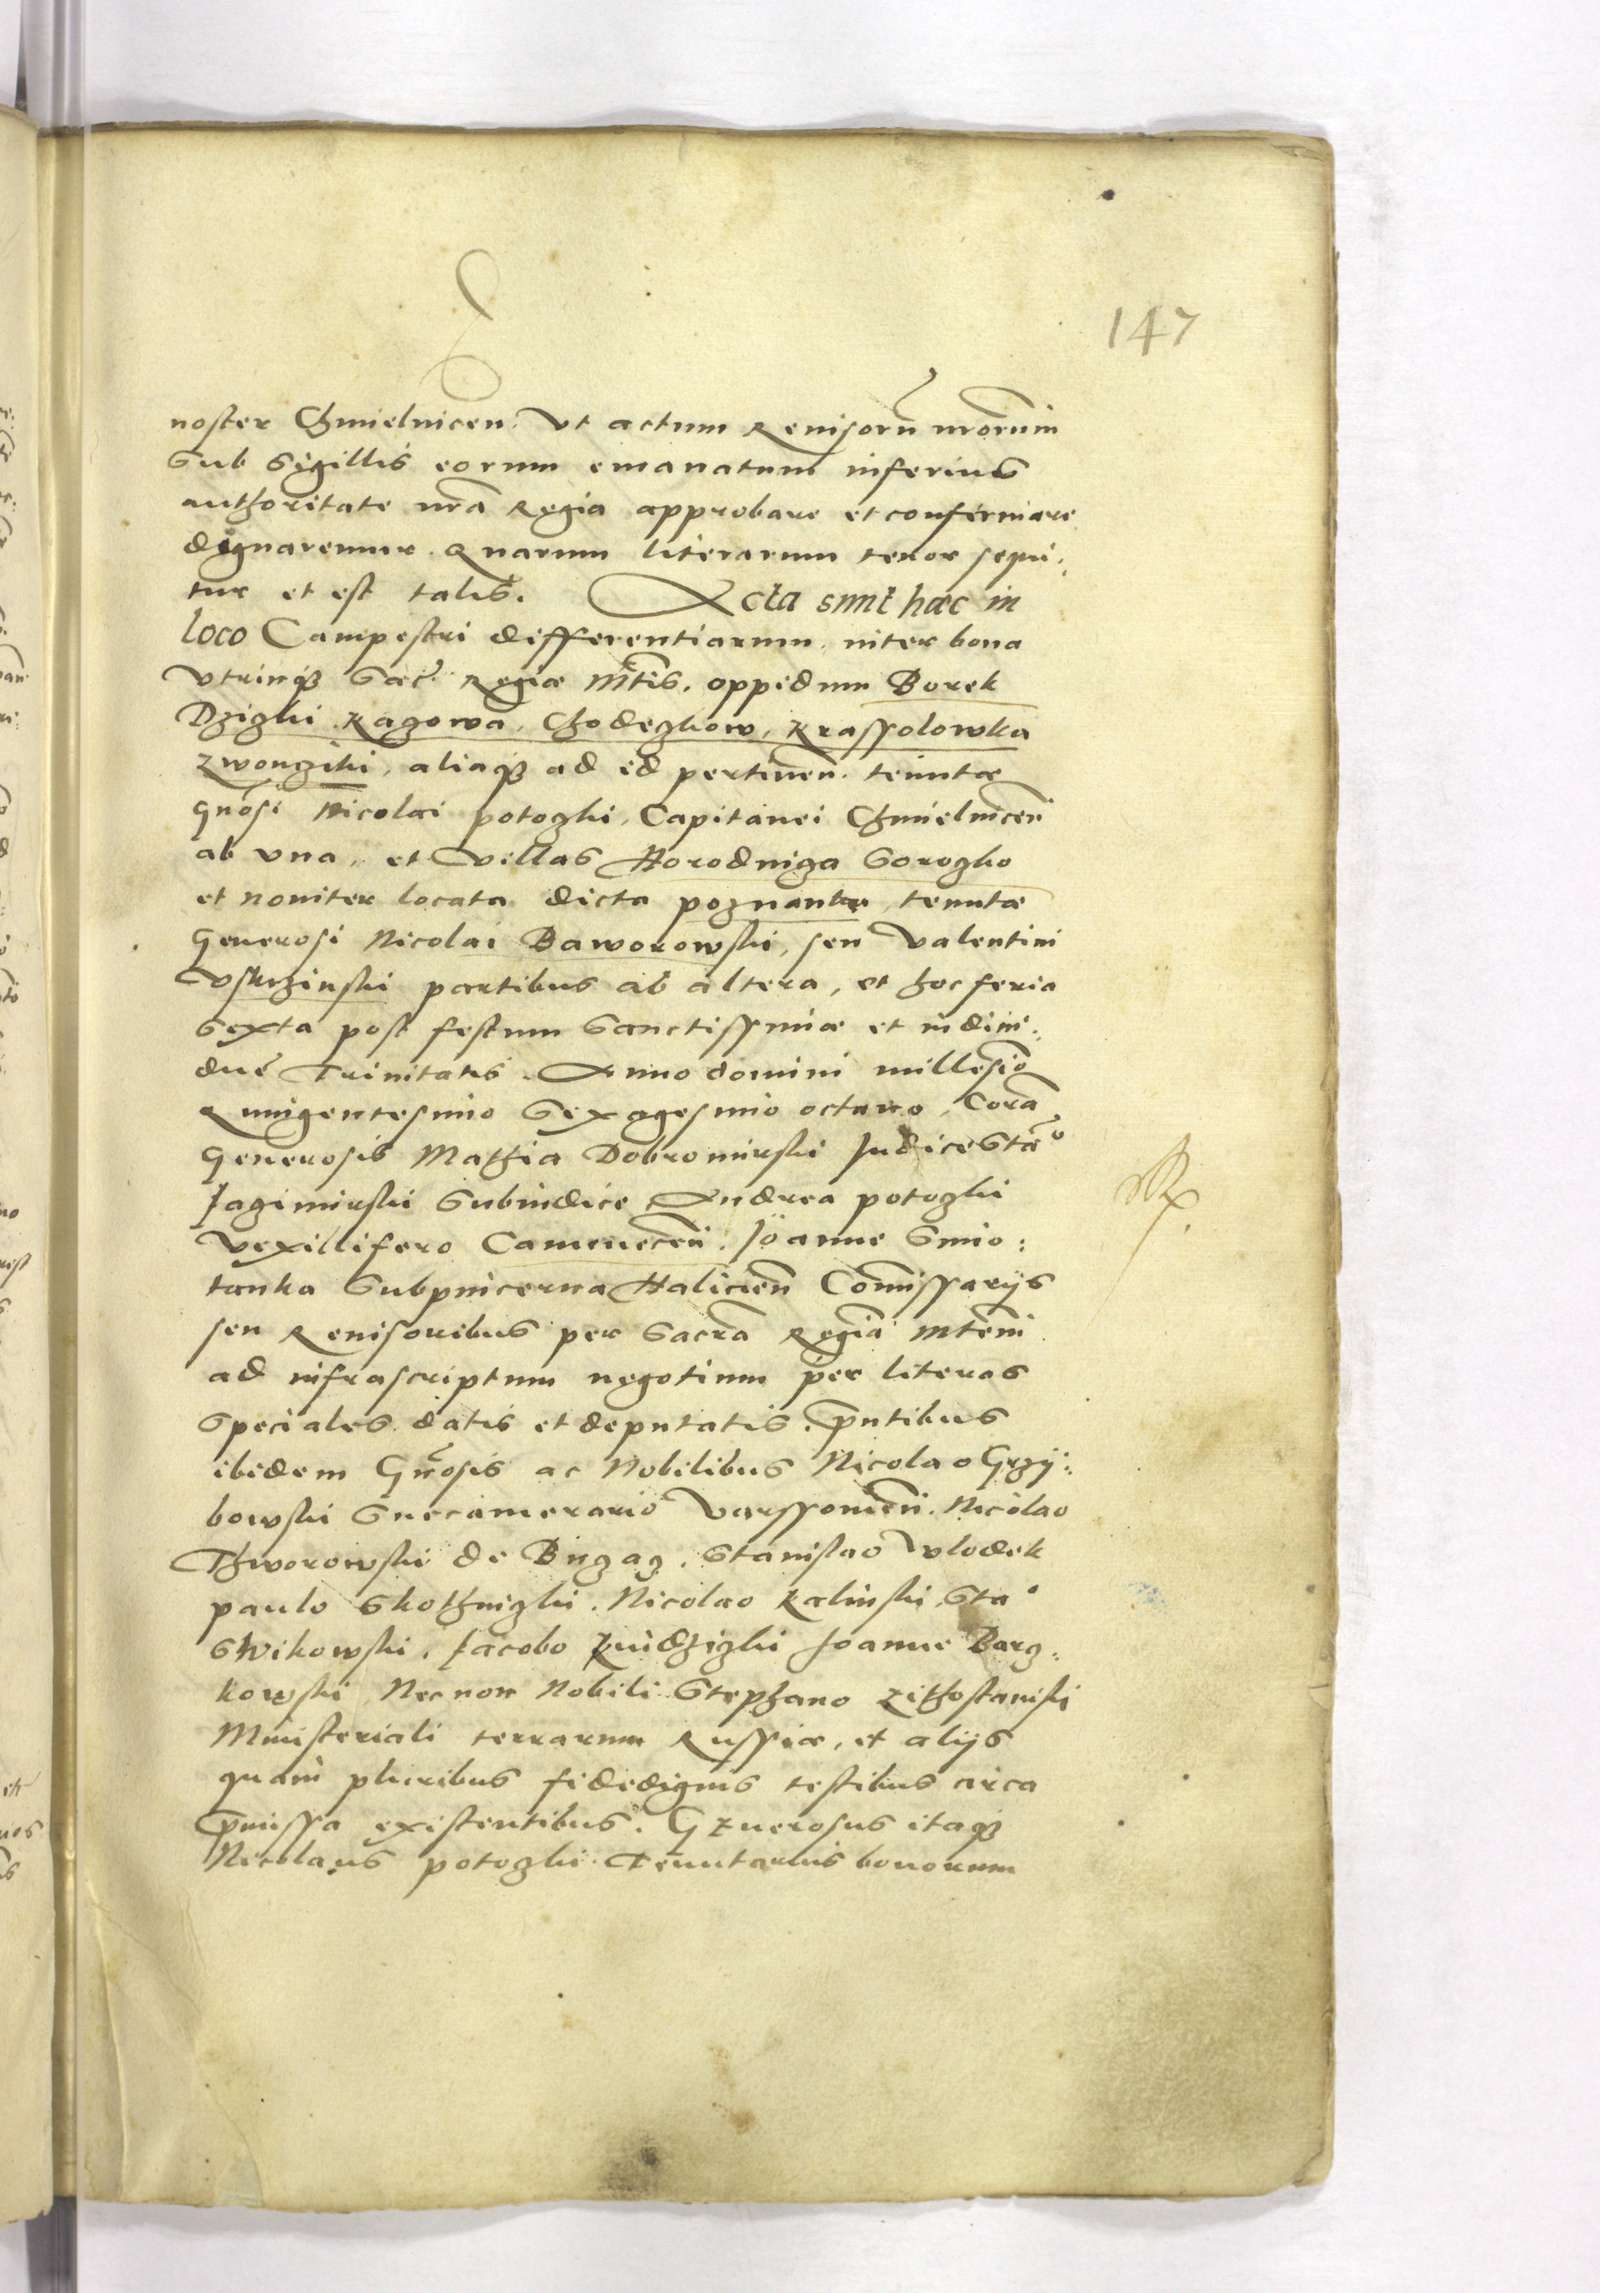 147
noster Chmielnicen. Vt actum Reuisorũ nrorum
sub sigillis eorum emanatum inferius
authoritate nrã Regia approbare et confirmare
dignaremur. Quarum literarum tenor sequi:
tur et est talis. Acta sunt haec in
loco Campestri differentiarum, inter bona
vtrinq3 Sacr. Regiae Mtis. oppidum Borek
Dzighi Ragowa, Chodeghow, Krassolowka
Zwonziki, aliaq3 ad id pertinen. tenutae
gnosi Nicolai potoghi, Capitanei Chmielnicen
ab vna, et villas Horodniza Sorogho
et nouiter locata dicta poznanka, tenutae
Generosi Nicolai Baworowski, seu Valentini
Vskrzinski partibus ab altera, et hoc feria
sexta post festum Sanctissimae et indiui:
due Trinitatis. Anno domini millesio
Quingentesimo Sexagesimo octauo, Corã
Generosis Mathia Dobromirski Judice Stao
Jagimirski Subiudice Andrea potoghi
Vexillifero Camenecen. Joanne Smio:
tanka Subpincerna Halicien Comissarijs
seu Reuisoribus per Sacrã Regiã Mtem
ad infrascriptum negotium per literas
speciales datis et deputatis. pntibus
ibidem Gnrosis ac Nobilibus Nicolao Grzy:
bowski Succamerario Varssouien. Nicolao
Thworowski de Buzaz. Stanislao Vlodek
paulo Skothnizki. Nicolao Kalinski Stao
Swikowski. Jacobo Joanne Barz:
kowski Necnon Nobili Stephano Zithostanski
Ministeriali terrarum Russiae, et alijs
quam pluribus fidedignis testibus circa
pmissa existentibus. Generosus itaq3
Nicolaus potozki Tenutarius bonorum